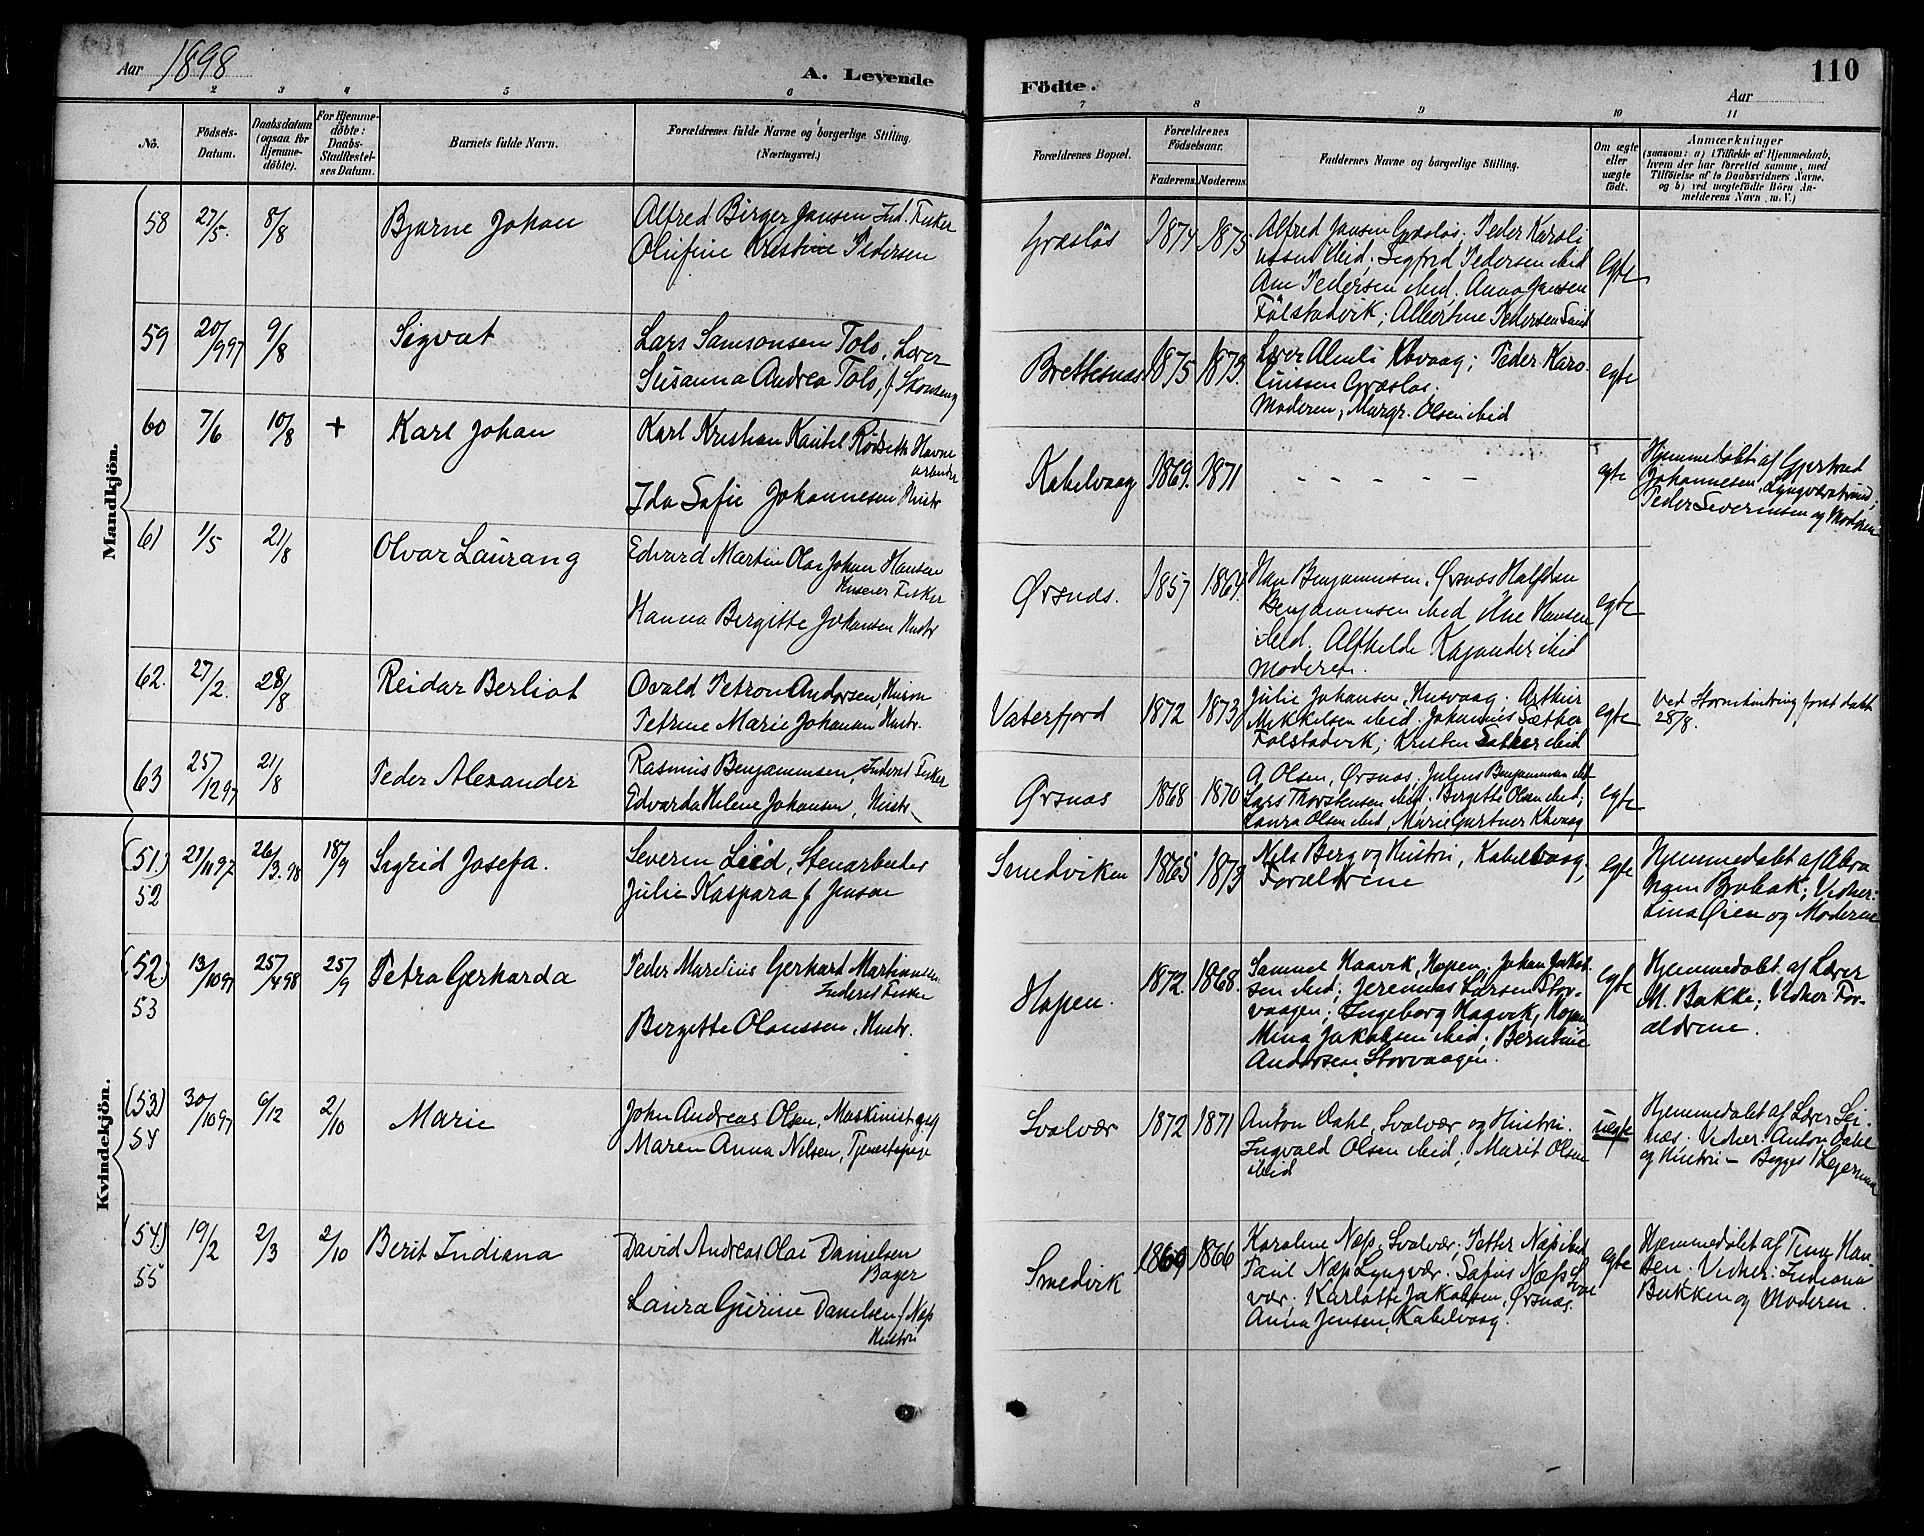 Aar 1898
A. Levende
Födte.
110
Aar
1 2 3 4 5 6 7 8 9 10 11
No.
Födsels-
Datum.
Daabsdatum
(ogsaa for
Hjemme-
döbte).
For Hjemme-
döbte:
Daabs-
Stadfæstel-
ses Datum.
Barnets fulde Navn.
Forældrenes fulde Navne og borgerlige Stilling.
(Næringsvei.)
Forældrenes Bopæl.
Forældrenes
Födselsaar.
Faderens. Moderens.
Faddernes Navne og borgerlige Stilling.
Om ægte
eller
uægte
födt.
Anmærkninger
(saasom: a) i Tilfælde af Hjemmedaab,
hvem der har forrettet samme, med
Tilföielse af to Daabsvidners Navne,
og b) ved uægtefödte Börn An-
melderens Navn, m. V.)
Mandkjön.
58 27/5. 8/8 Bjarne Johan
Alfred Birger Jansen Ind. Fisker
Olufine Kristine Pedersen
Græsløs 1874 1875
Alfred Jansen Græsløs; Peder Karoli
nssen ibid. Sigfrid Pedersen ibid
Ane Pedersen ibid. Anna Jansen
Fölstadvik; Albertine Pedersen
egte
59 20/9 97 9/8 Sigvat
Lars Samsonsen Tolo, Lærer
Susanna Andrea Tolo, f Skonseng
Brettesnæs 1875 1873.
Lærer Almli Kbvaag; Peder Karo
linssen Græsløs.
Moderen; Margr. Olsen ibid
egte
60 7/6 10/8 + Karl Johan
Karl Kristian Kantel Rödseth Havne
arbeider
Ida Sofie Johannesen Hustr
Kabelvaag 1869. 1871 - - - - -
egte
Hjemmedøbt af Gjertrud
Johannesen, Lyngværstrand;
Peder Severinsen og Moderen
61 1/5 21/8 Olvar Laurang
Edvard Martin Olai Johan Hansen
Huseier Fisker
Hanna Bergitte Johansen Hustr
Ørsnæs. 1857 1864.
Han Benjaminsen, Ørsnæs Halfdan
Benjaminsen ibid Ane Hansen
ibid. Alfhilde Kajander ibid
Moderen.
egte
62. 27/2. 28/8 Reidar Berliot
Ovald Petron Andersen,
Petrine Marie Johansen Hustr.
Vaterfjord 1872 1873
Julie Johansen, Husvaag; Arthur
Mikkelsen ibid. Johannes Sæther
Fölstadvik; Kristen Sæther ibid
egte
Ved Stormhindring først døbt
28/8.
63 25/12 97 21/8 Peder Alexander
Rasmus Benjaminsen, Inderst Fisker
Edvarda Helene Johansen, Hustr
Ørsnæs 1868 1870
A Olsen, Ørsnæs. Julius Benjaminsen ibid
Lars Thorstensen ibid; Bergitte Olsen ibid;
Laura Olsen ibid, Marie Gartner Kbvaag
egte
Kvindekjön.
(51.) 52 21/11 97 26/3. 98 18/9 Sigrid Josefa.
Severin Lied, Stenarbeider
Julie Kaspara f Jensen
Smedviken 1865 1873
Nils Berg og Hustru, Kabelvaag;
Forældrene
egte
Hjemmedøbt af Abra
ham Brobak; Vidner:
Lina Øien og Moderne
(52) 53 13/10 97 25/4 98 25/9 Petra Gerharda
Peder Marelius Gerhard Martinussen
Inderst Fisker
Bergette Olaussen, Hustr.
Hopen. 1872. 1868.
Samuel Haavik, Hopen; Johan Jakob
sen ibid; Jeremias Larsen Stor-
vaagen; Ingeborg Haavik, Hopen
Mina Jakobsen ibid; Berntine
Andersen, Storvaagen.
egte
Hjemmedøbt af Lærer
M. Bakke; Vidner For-
ældrene.
(53) 54 30/10 97 6/12 2/10 Marie
John Andreas Olsen, Maskinist gift
Maren Anna Nilsen, Tjenestepige
Svolvær 1872 1871
Anton Dahl, Svolvær og Hustru.
Ingvald Olsen ibid; Marit Olsen
ibid
uegte
Hjemmedøbt af Lærer Sei-
næs. Vidner: Anton Dahl
og Hustru – Begges 1 Leiermaal
(54) 55 19/2 2/3 2/10 Berit Indiana
David Andreas Olai Danielsen
Bager
Laura Gurine Danielsen f Næss
Hustru
Smedvik 1869 1866
Karoline Næss, Svolvær; Petter Næss ibid
Paul Næss Lyngvær. Sofus Næss Svol
vær. Karlotte Jakobsen, Ørsnæs.
Anna Jensen, Kabelvaag.
egte
Hjemmedøbt af Tina Han-
sen. Vidner: Indiana
Bakken og Moderen.